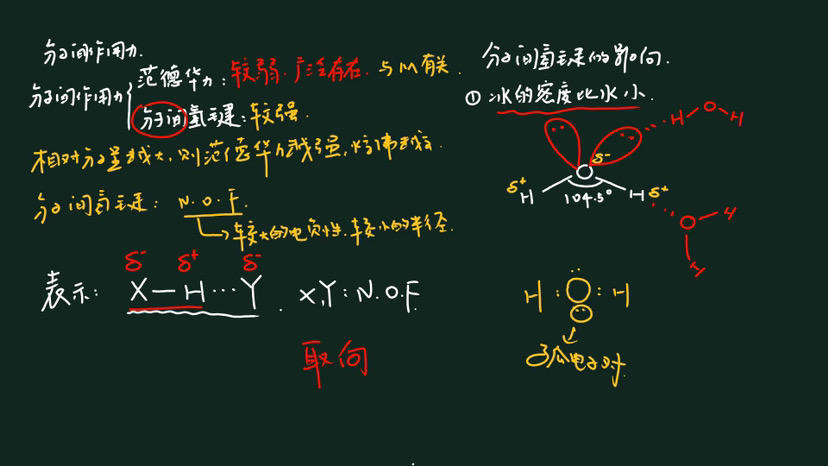 分子间作用力.
分子间作用力
范德华力: 较弱. 广泛存在. 与M有关.
分子间氢键: 较强.
相对分子量越大, 则范德华力越强, 熔沸越高
分子间氢键: N.O.F.
较大的电负性. 较小的半径.
δ- δ+ δ-
表示: X—H…Y. X,Y: N.O.F.
取向
分子间氢键的取向.
① 冰的密度比水小.
H O H
δ-
δ+ H O H δ+
104.5°
O H
H
H : O : H
孤电子对.